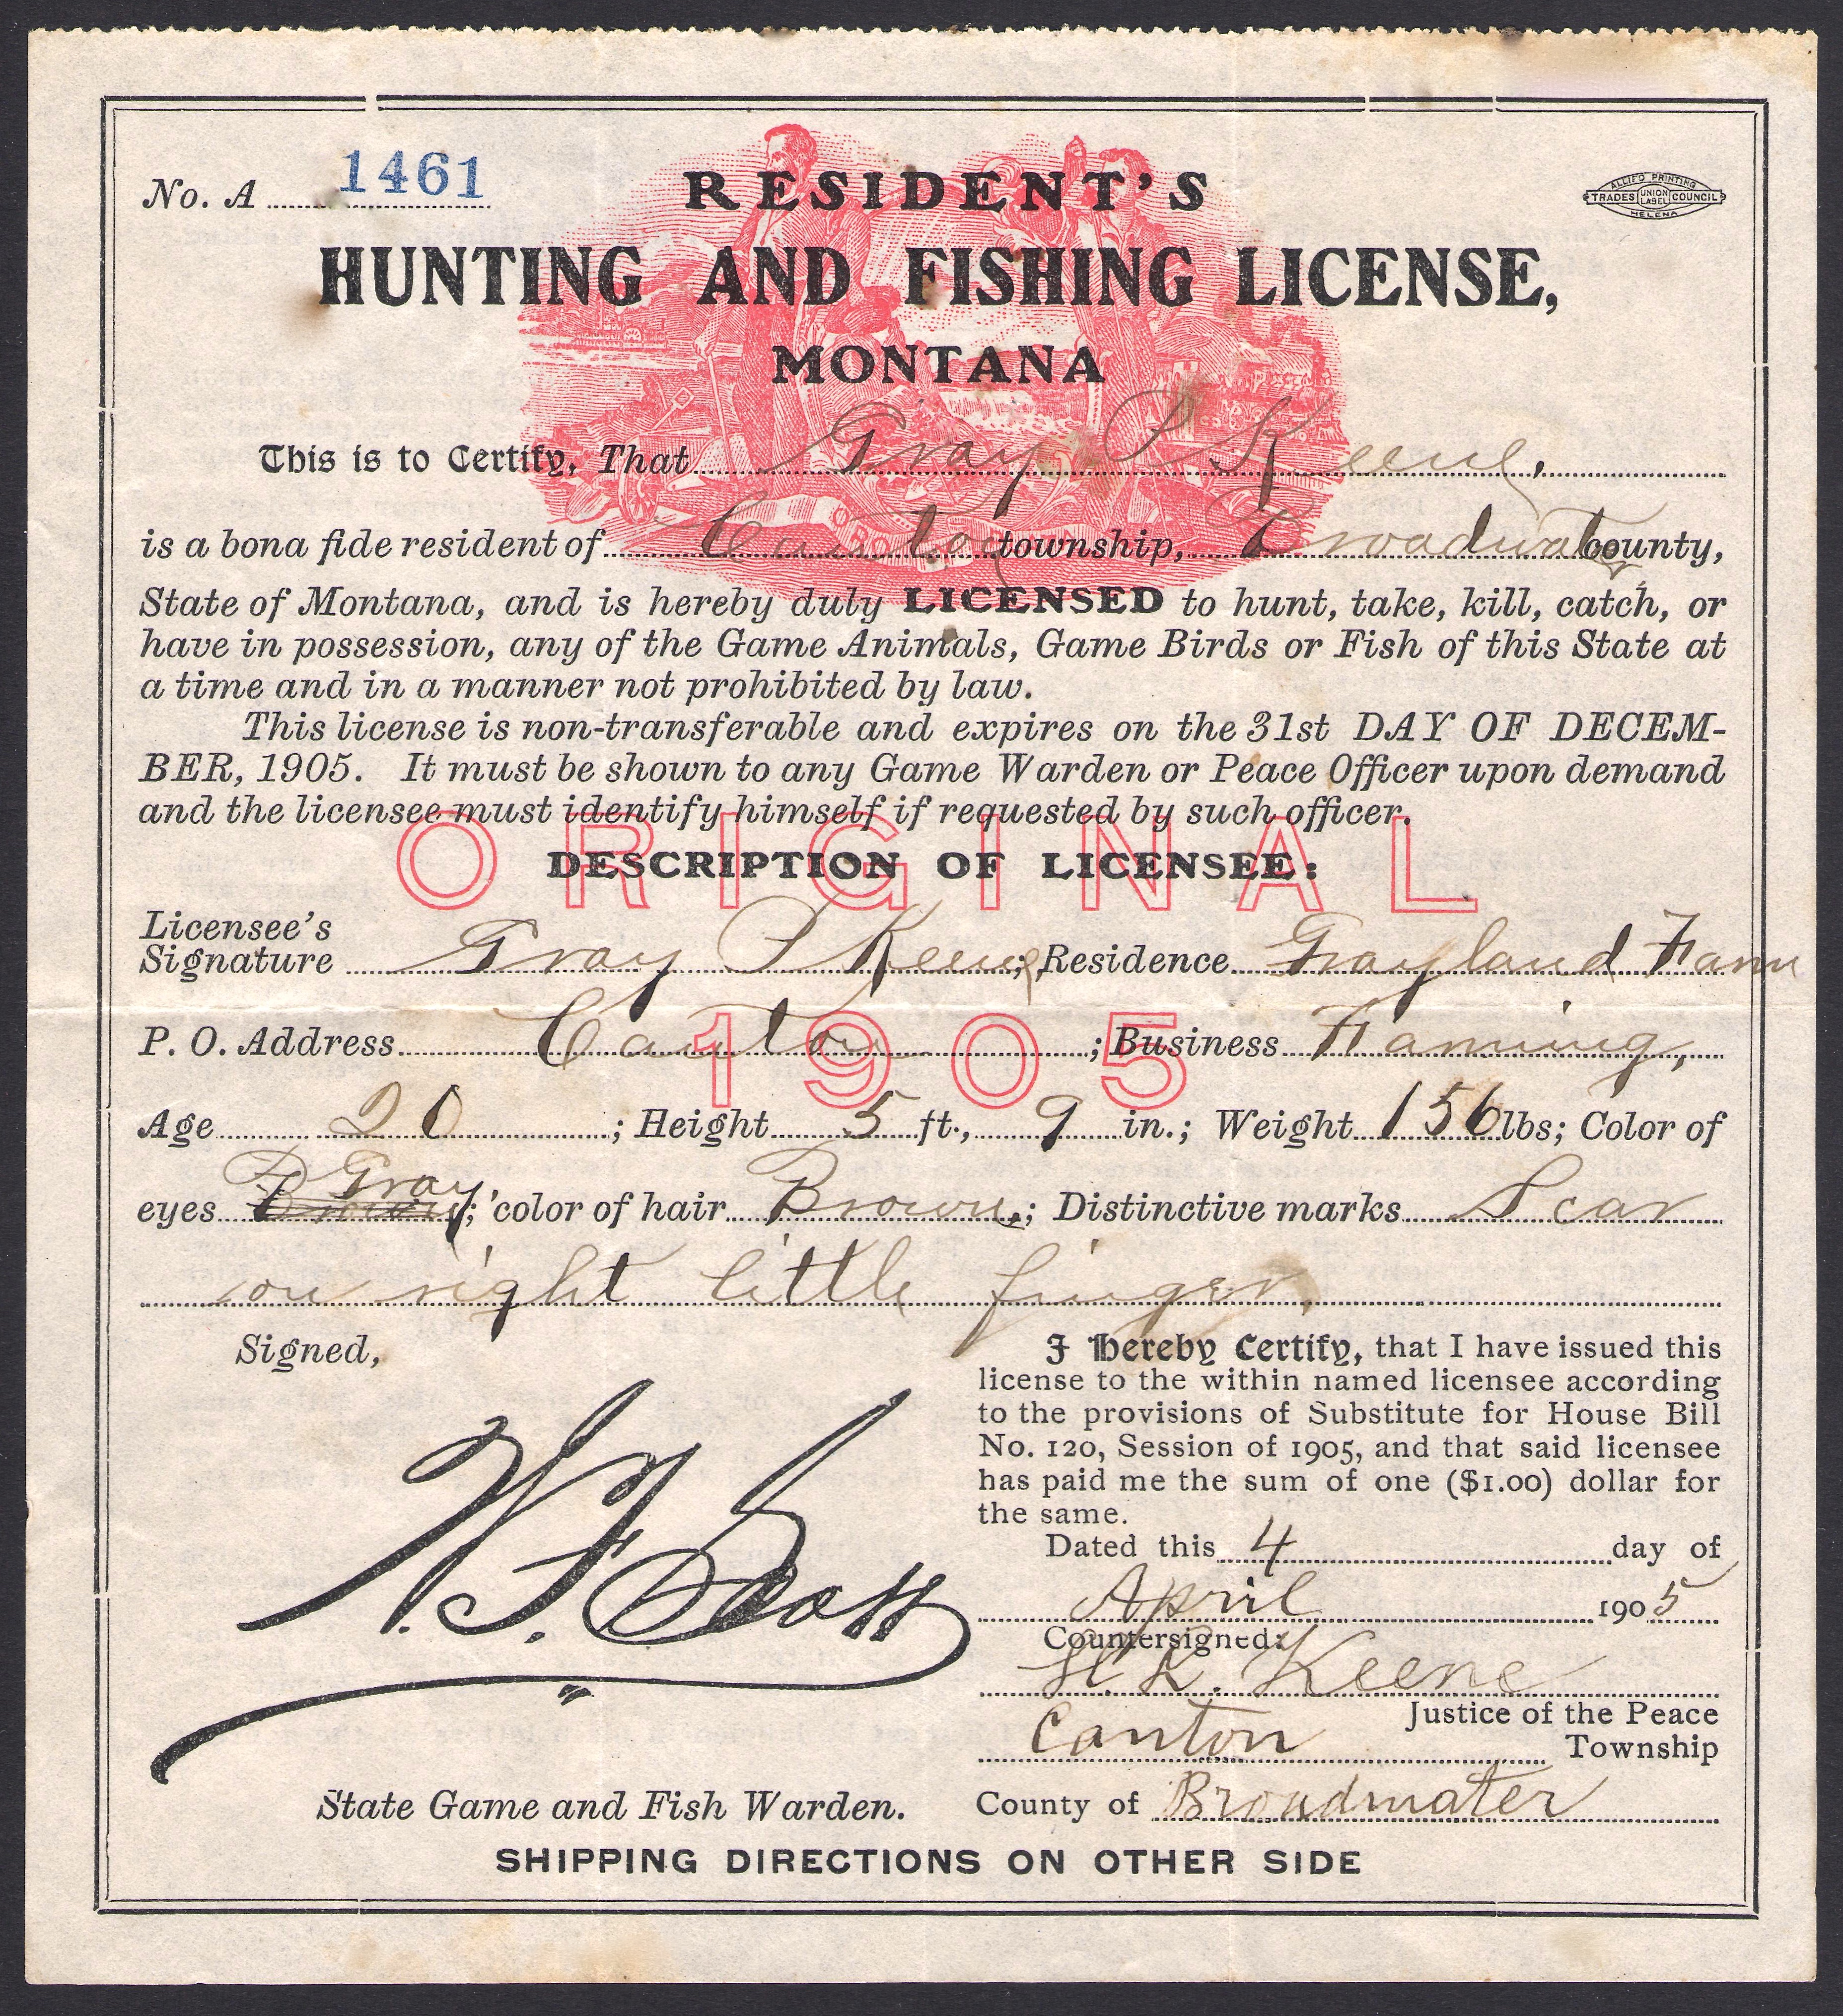 No. A 1461
ALLIED PRINTING
TRADES UNION LABEL COUNCIL
HELENA
RESIDENT'S
HUNTING AND FISHING LICENSE,
MONTANA
This is to Certify, That Gray P Keene,
is a bona fide resident of Canton township, Broadwater county,
State of Montana, and is hereby duly LICENSED to hunt, take, kill, catch, or
have in possession, any of the Game Animals, Game Birds or Fish of this State at
a time and in a manner not prohibited by law.
This license is non-transferable and expires on the 31st DAY OF DECEM-
BER, 1905. It must be shown to any Game Warden or Peace Officer upon demand
and the licensee must identify himself if requested by such officer.
ORIGINAL
DESCRIPTION OF LICENSEE:
Licensee's
Signature Gray P Keene; Residence Grayland Farm
1905
P. O. Address Canton; Business Farming,
Age 20; Height 5 ft., 9 in.; Weight 156 lbs; Color of
eyes Brown Gray; color of hair Brown; Distinctive marks Scar
on right little finger.
Signed,
W. F. Scott
State Game and Fish Warden.
I hereby Certify, that I have issued this
license to the within named licensee according
to the provisions of Substitute for House Bill
No. 120, Session of 1905, and that said licensee
has paid me the sum of one ($1.00) dollar for
the same.
Dated this 4 day of
April 1905
Countersigned:
H. K. Keene
Justice of the Peace
Canton Township
County of Broadwater
SHIPPING DIRECTIONS ON OTHER SIDE